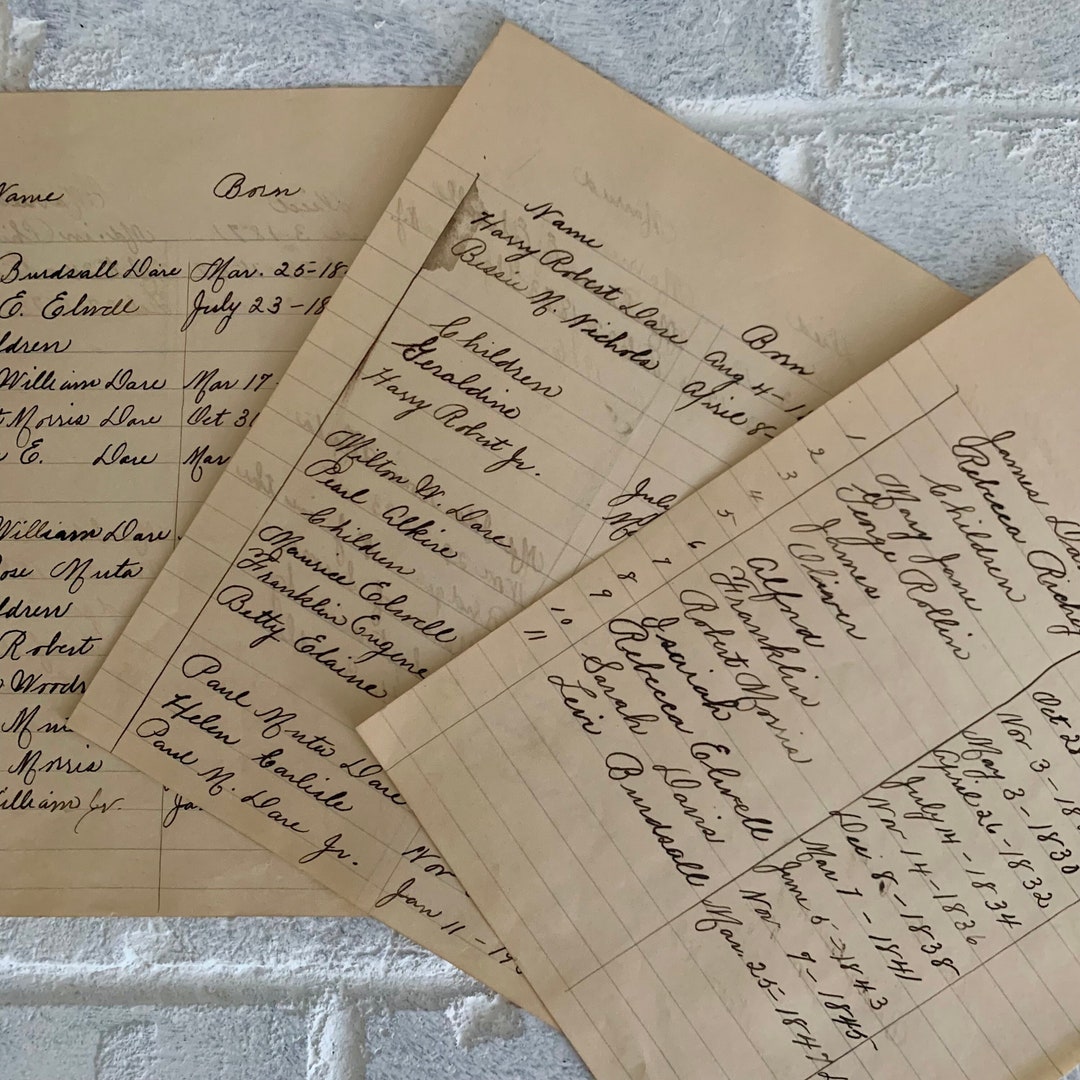 Name Born
Burdsall Dare Mar. 25-18
E. Elwell July 23-18
ldren
William Dare Mar 17
Morris Dare Oct 31
E. Dare Mar
William Dare
ose Muta
ldren
Robert
Woods
Morris
illiam Jr. Ja.
Name Born
Harry Robert Dare Aug 4-1
Bessie M. Nichols April 8-
Children
Geraldine July
Harry Robert Jr. No
Milton W. Dare
Pearl Alkire
Children
Maurice Elwell
Franklin Eugene
Betty Elaine
Paul Muta Dare
Helen Carlisle Nov
Paul M. Dare Jr. Jan 11-19
James Dare
Rebecca Richy
Children
1 Mary Jane Oct 2
2 George Rollin Nov 3-18
3 James May 3-1830
4 Oliver April 26-1832
5 Alford July 14-1834
6 Franklin Nov 14-1836
7 Robert Morris Dec 8-1838
8 Isaiah Mar 7-1841
9 Rebecca Elwell June 5-1843
10 Sarah Davis Nov 9-1845
11 Levi Burdsall Mar. 25-1847